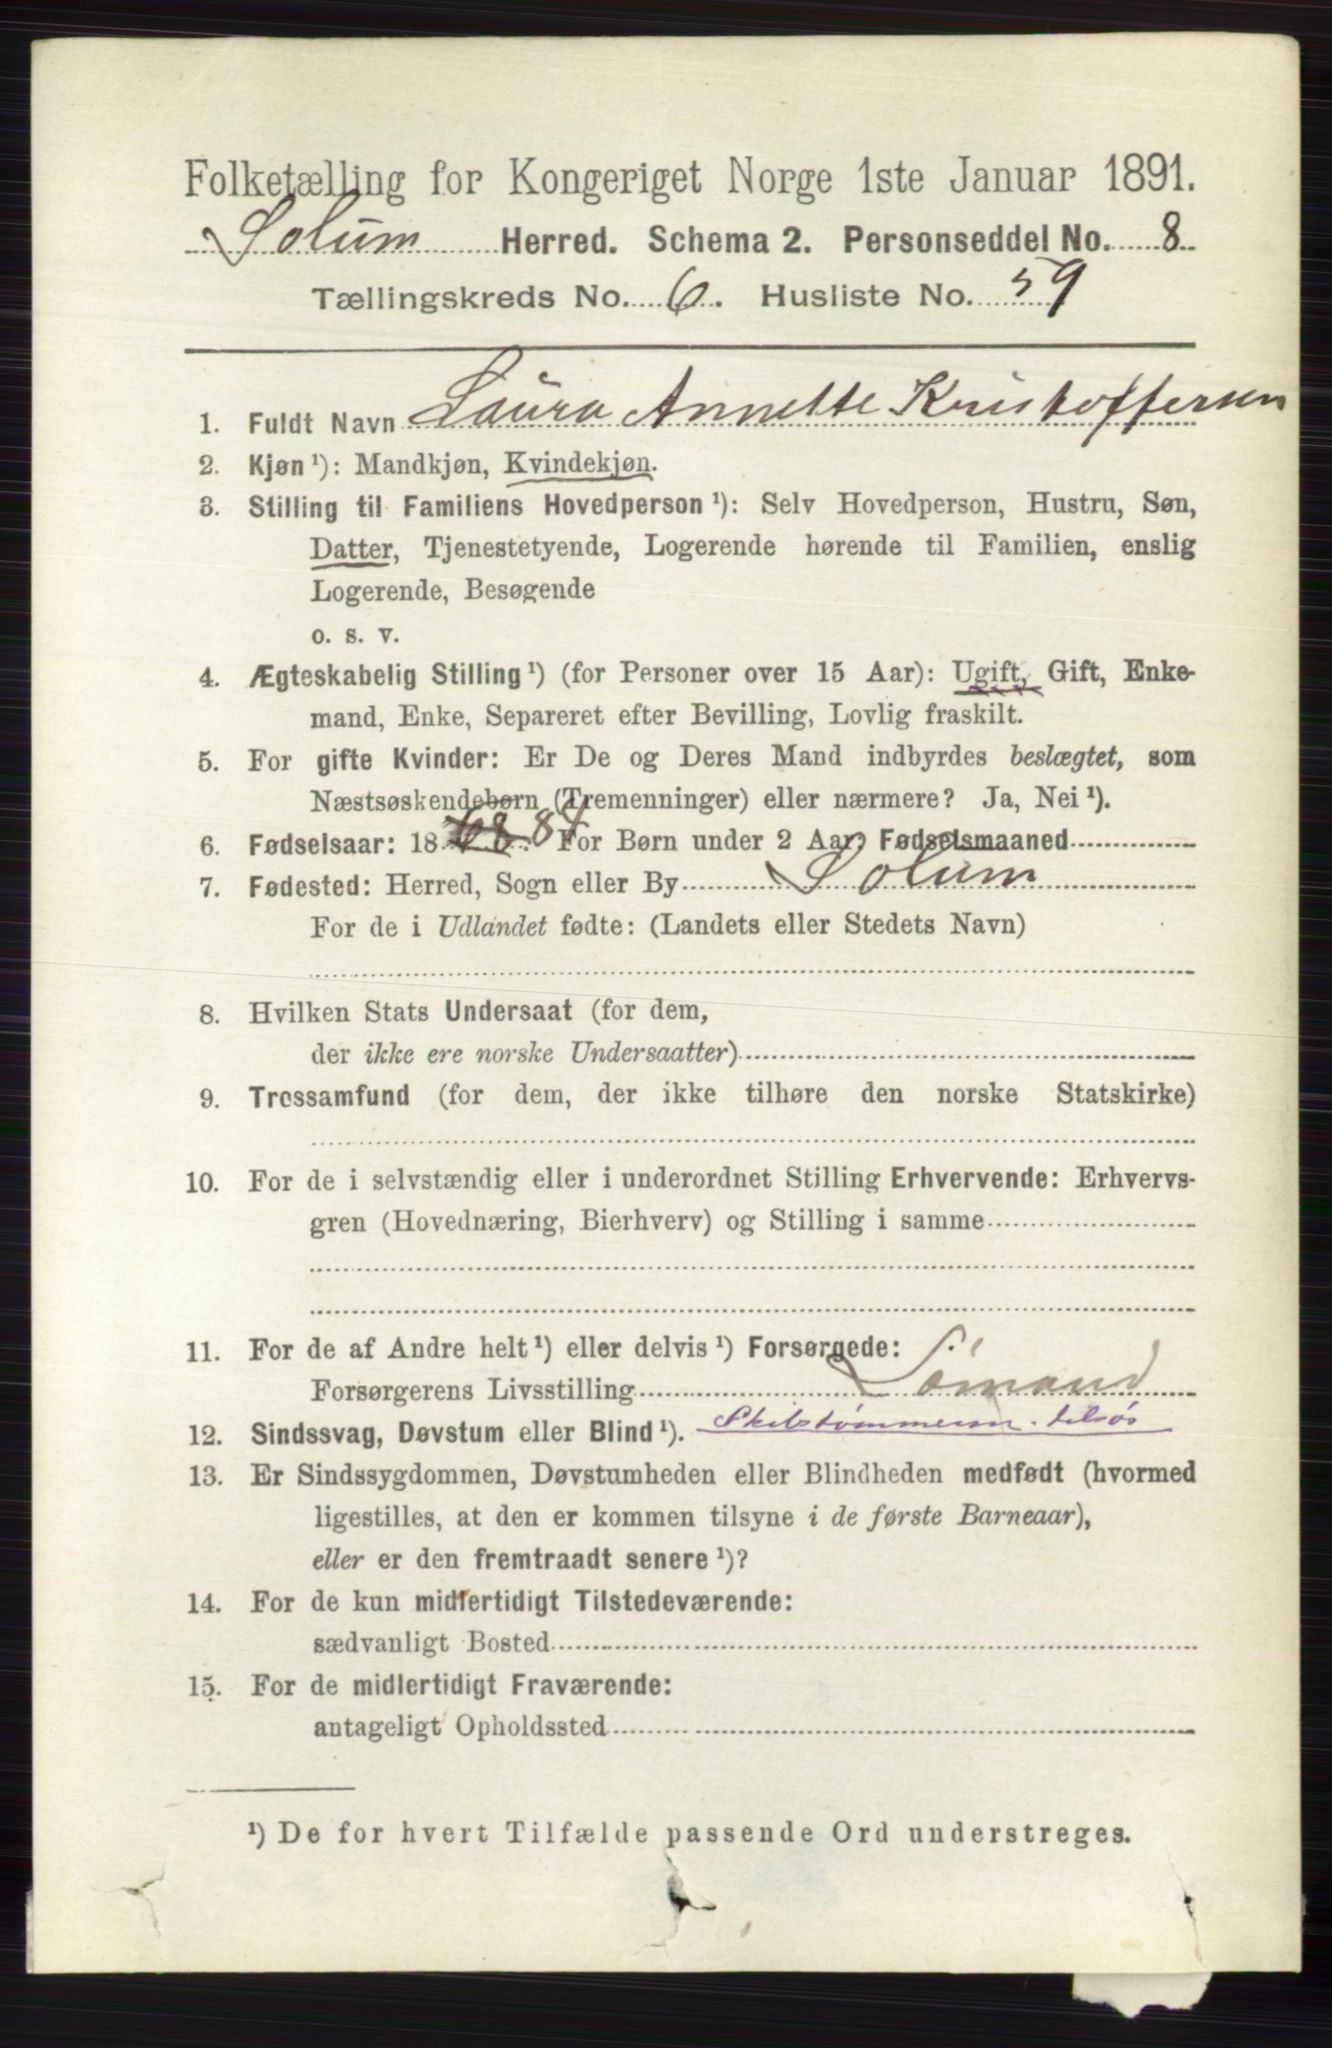 Folketælling for Kongeriget Norge 1ste Januar 1891.
Solum Herred. Schema 2. Personseddel No. 8
Tællingskreds No. 6. Husliste No. 59
1. Fuldt Navn Laura Annette Kristoffersen
2. Kjøn ¹): Mandkjøn, Kvindekjøn.
3. Stilling til Familiens Hovedperson ¹): Selv Hovedperson, Hustru, Søn,
Datter, Tjenestetyende, Logerende hørende til Familien, enslig
Logerende, Besøgende
o. s. v.
4. Ægteskabelig Stilling ¹) (for Personer over 15 Aar): Ugift, Gift, Enke-
mand, Enke, Separeret efter Bevilling, Lovlig fraskilt.
5. For gifte Kvinder: Er De og Deres Mand indbyrdes beslægtet, som
Næstsøskendebørn (Tremenninger) eller nærmere? Ja, Nei ¹).
6. Fødselsaar: 18 68 84 For Børn under 2 Aar: Fødselsmaaned
7. Fødested: Herred, Sogn eller By Solum
For de i Udlandet fødte: (Landets eller Stedets Navn)
8. Hvilken Stats Undersaat (for dem,
der ikke ere norske Undersaatter)
9. Trossamfund (for dem, der ikke tilhøre den norske Statskirke)
10. For de i selvstændig eller i underordnet Stilling Erhvervende: Erhvervs-
gren (Hovednæring, Bierhverv) og Stilling i samme
11. For de af Andre helt ¹) eller delvis ¹) Forsørgede:
Forsørgerens Livsstilling Sömand
12. Sindssvag, Døvstum eller Blind ¹). Skibstømmerm. tilsøs
13. Er Sindssygdommen, Døvstumheden eller Blindheden medfødt (hvormed
ligestilles, at den er kommen tilsyne i de første Barneaar),
eller er den fremtraadt senere ¹)?
14. For de kun midlertidigt Tilstedeværende:
sædvanligt Bosted
15. For de midlertidigt Fraværende:
antageligt Opholdssted
¹) De for hvert Tilfælde passende Ord understreges.